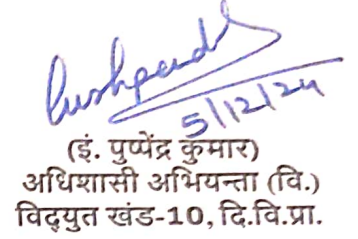 Pushpendra
5/12/24
(इं. पुष्पेंद्र कुमार)
अधिशासी अभियन्ता (वि.)
विद्युत खंड-10, दि.वि.प्रा.